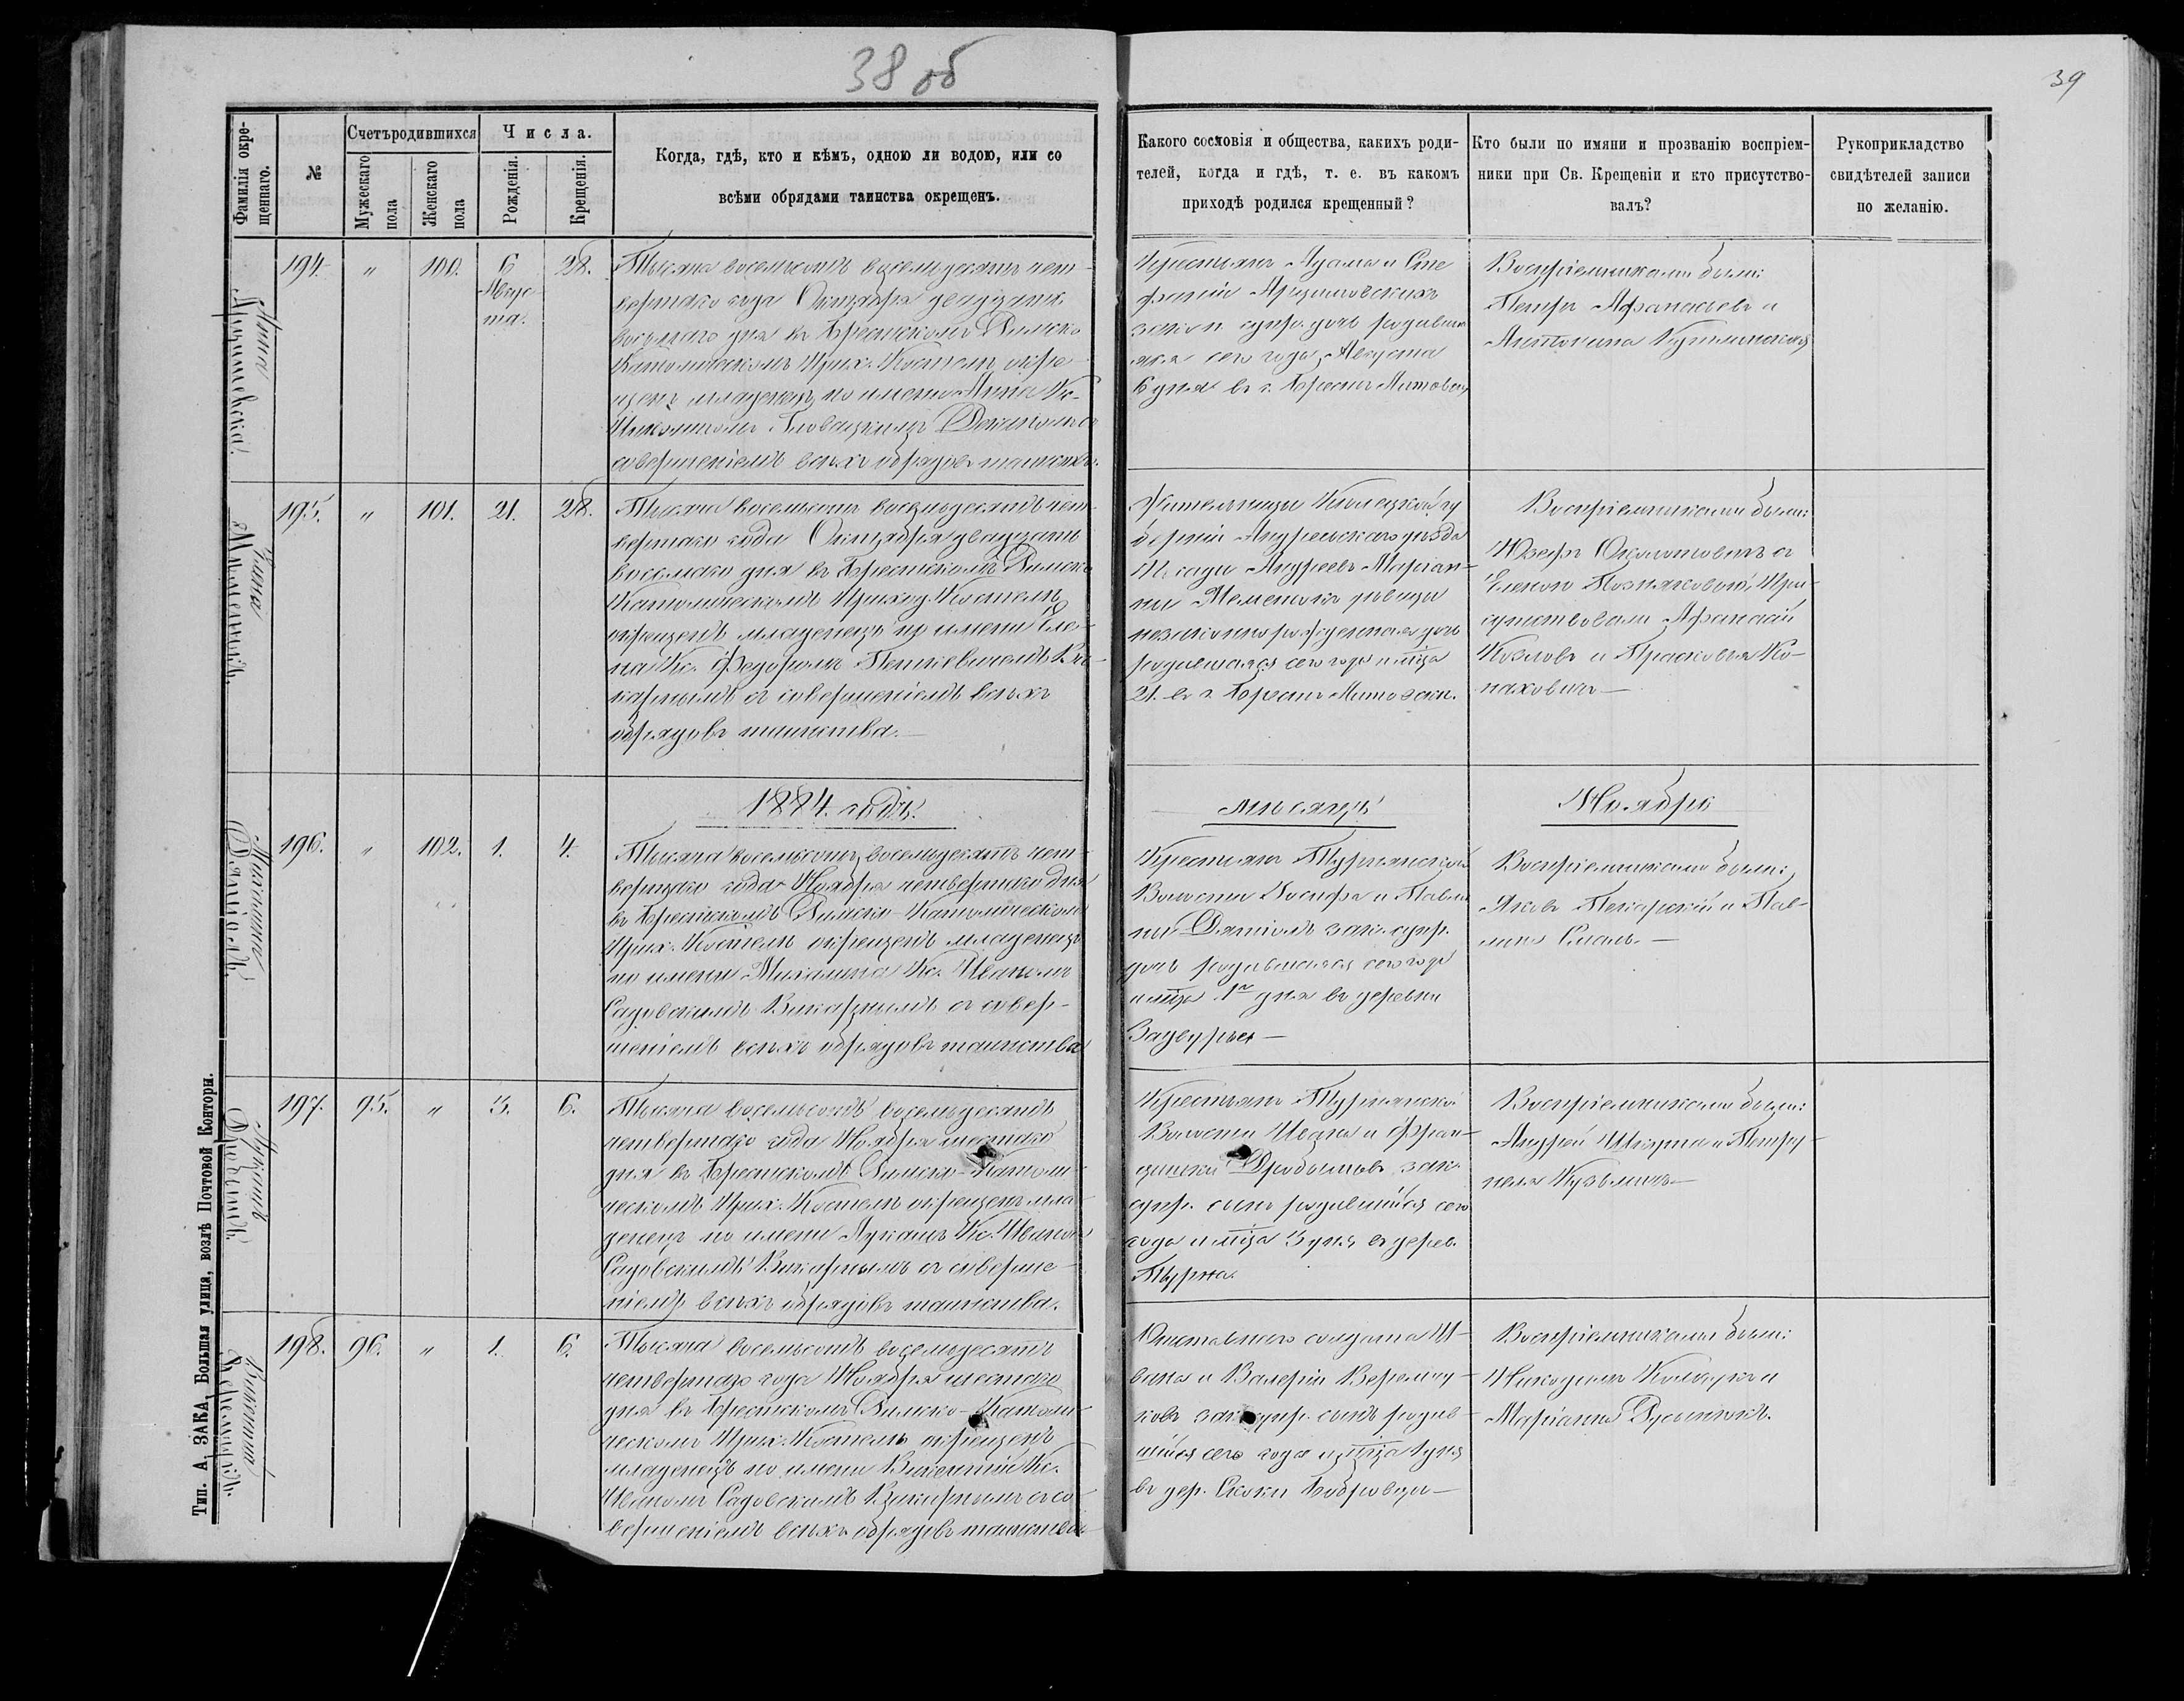 38 об
39
Фамилія окре-
щеннаго.
№
Счетъ родившихся
Мужескаго
пола
Женскаго
пола
Числа.
Рожденія.
Крещенія.
Когда, гдѣ, кто и кѣмъ, одною ли водою, или со
всѣми обрядами таинства окрещенъ.
Какого сословія и общества, какихъ роди-
телей, когда и гдѣ, т. е. въ какомъ
приходѣ родился крещенный?
Кто были по имяни и прозванію воспріем-
ники при Св. Крещеніи и кто присутство-
валъ?
Рукоприкладство
свидѣтелей записи
по желанію.
Анна
194.
"
100.
6
Авгус-
та.
28.
Тысяча восемьсотъ восемьдесятъ чет-
вертаго года Октября двадцать
восьмаго дня въ Брестскомъ Римско
Католическомъ Прих. Костелѣ окре-
щенъ младенецъ по имени Анна Кс.
совершеніемъ всѣхъ обрядовъ таинства.
Крестьянъ Адама и Сте
фаніи
закон. супр. дочь родивша
яся сего года Августа
6 дня въ г. Брестъ Литовскѣ
Воспріемниками были:
Петръ Афанасьевъ и
Антонина
Елена
195.
"
101.
21.
28.
Тысяча восемьсотъ восемьдесятъ чет-
вертаго года Октября двадцать
восьмаго дня въ Брестскомъ Римско
Католическомъ Приход. Костелѣ
окрещенъ младенецъ по имени Еле-
на Кс. Федоромъ Петкевичемъ Ви-
карнымъ съ совершеніемъ всѣхъ
обрядовъ таинства.
Жительницы Кѣлецкой гу
берніи Андреевскаго уѣзда
Маріан-
ны дѣвицы
незаконнорожденная дочь
родившаяся сего года и м-ца
21. въ г. Брестъ Литовскѣ.
Воспріемниками были:
Юзефъ съ
Еленою Позняковой, При-
сутствовали Афанасій
Козловъ и Прасковья Ко-
наховичъ
1884. годъ.
мѣсяцъ
Ноябрь
Михалина
Даніелъ
196.
"
102.
1.
4.
Тысяча восемьсотъ восемьдесятъ чет-
вертаго года Ноября четвертаго дня
въ Брестскомъ Римско-Католическомъ
Прих. Костелѣ окрещенъ младенецъ
по имени Михалина Кс. Иваномъ
Садовскимъ Викарнымъ съ совер-
шеніемъ всѣхъ обрядовъ таинства
Крестьянъ Турнянской
Волости Іосифа и Павли
ны зак. супр.
дочь родившаяся сего года
и м-ца 1го дня въ деревни
Задворье
Воспріемниками были:
Яковъ Пекарскій и Пав-
лина
Лукашъ
197.
95.
"
3.
6.
Тысяча восемьсотъ восемьдесятъ
четвертаго года Ноября шестаго
дня въ Брестскомъ Римско-Католи
ческомъ Прих. Костелѣ окрещенъ мла-
денецъ по имени Лукашъ Кс. Иваномъ
Садовскимъ Викарнымъ съ соверше-
ніемъ всѣхъ обрядовъ таинства.
Крестьянъ Турнянской
Волости Ивана и Фран-
цишки зак.
супр. сынъ родившійся сего
года и м-ца 3 дня въ дерев.
Турна.
Воспріемниками были:
Андрей Шкута и Петру-
неля Кузьмичъ
Викентій
198.
96.
"
1.
6.
Тысяча восемьсотъ восемьдесятъ
четвертаго года Ноября шестаго
дня въ Брестскомъ Римско-Католи
ческомъ Прих. Костелѣ окрещенъ
младенецъ по имени Викентій Кс.
Иваномъ Садовскимъ Викарнымъ съ со
вершеніемъ всѣхъ обрядовъ таинства
Отставнаго солдата И-
вана и Валеріи
зак. супр. сынъ родив-
шійся сего года и м-ца 1 дня
въ дер. Скоки
Воспріемниками были:
Никодимъ и
Маріанна
Тип. А. ЗАКА, Большая улица, возлѣ Почтовой Конторы.